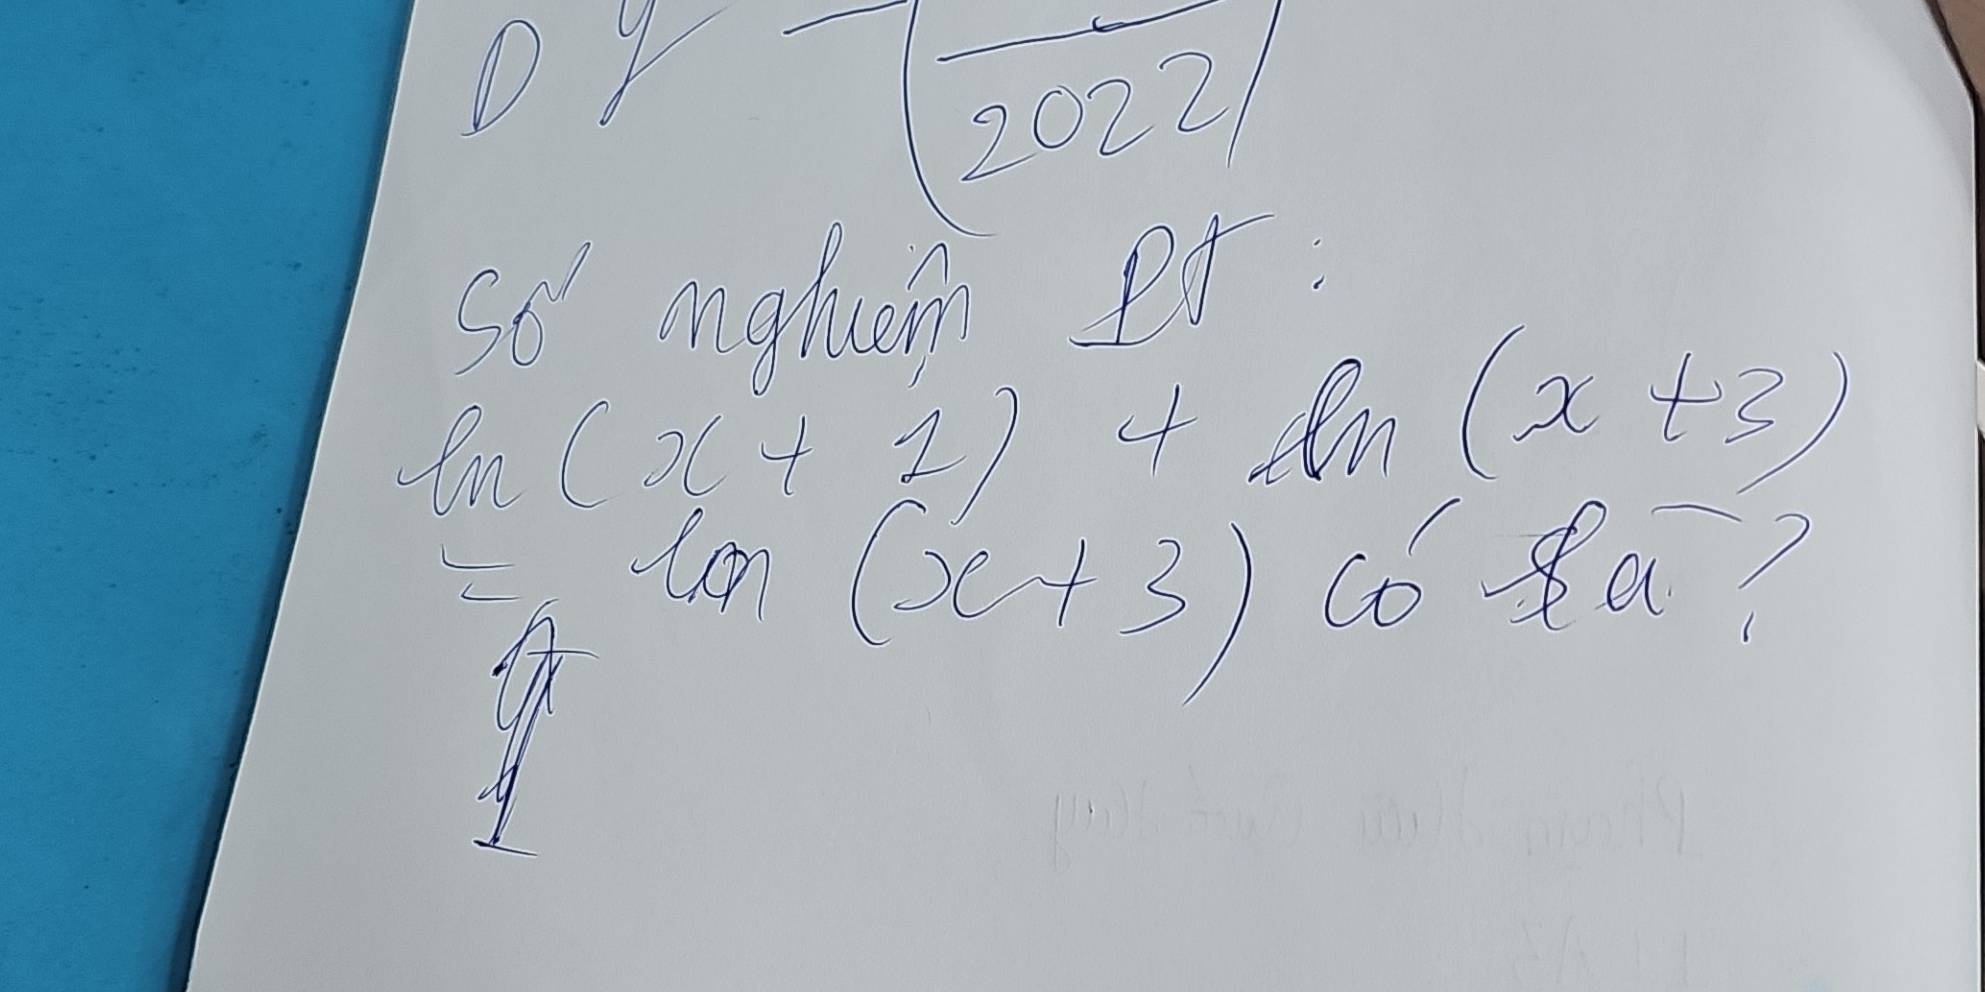 D y = (
2022)
Số nghiệm Pt :
ln (x + 1) + ln (x + 3)
= ln (x + 3) có là ?